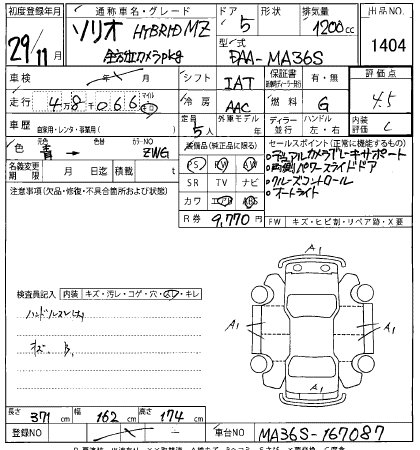 初度登録年月 通称車名・グレード ドア 形状 排気量 出品NO
29/11月 ソリオ HYBRID MZ 5 1200cc 1404
全方位カメラpkg 型式 DAA-MA36S
車検 年 月 シフト IAT 保証書 有・無 評価点
走行 48066 冷房 AAC 燃料 G 4.5
車歴 自家用・レンタ・事業用( ) 定員 5人 外車モデル ディーラー 並行 ハンドル 左・右 内装評価 C
色 元色 青 → 色替 カラーNO ZWG 装備品(純正品に限る) セールスポイント(正常に機能するもの)
PS PW AW ・デュアルカメラブレーキサポート
名義変更期限 月 日迄 積載 t SR TV ナビ ・両側パワースライドドア
注意事項(欠品・修復・不具合箇所および状態) カワ エアB ABS ・クルーズコントロール
・オートライト
R券 9,770円 FW キズ・ヒビ割・リペア跡・X要
A1
検査員記入 内装 キズ・汚レ・コゲ・穴・スレ・キレ
ハンドルスレ(大)
A1 A1
キズ、
A1
長さ 371cm 幅 162cm 高さ 174cm
登録NO 車台NO MA36S-167087